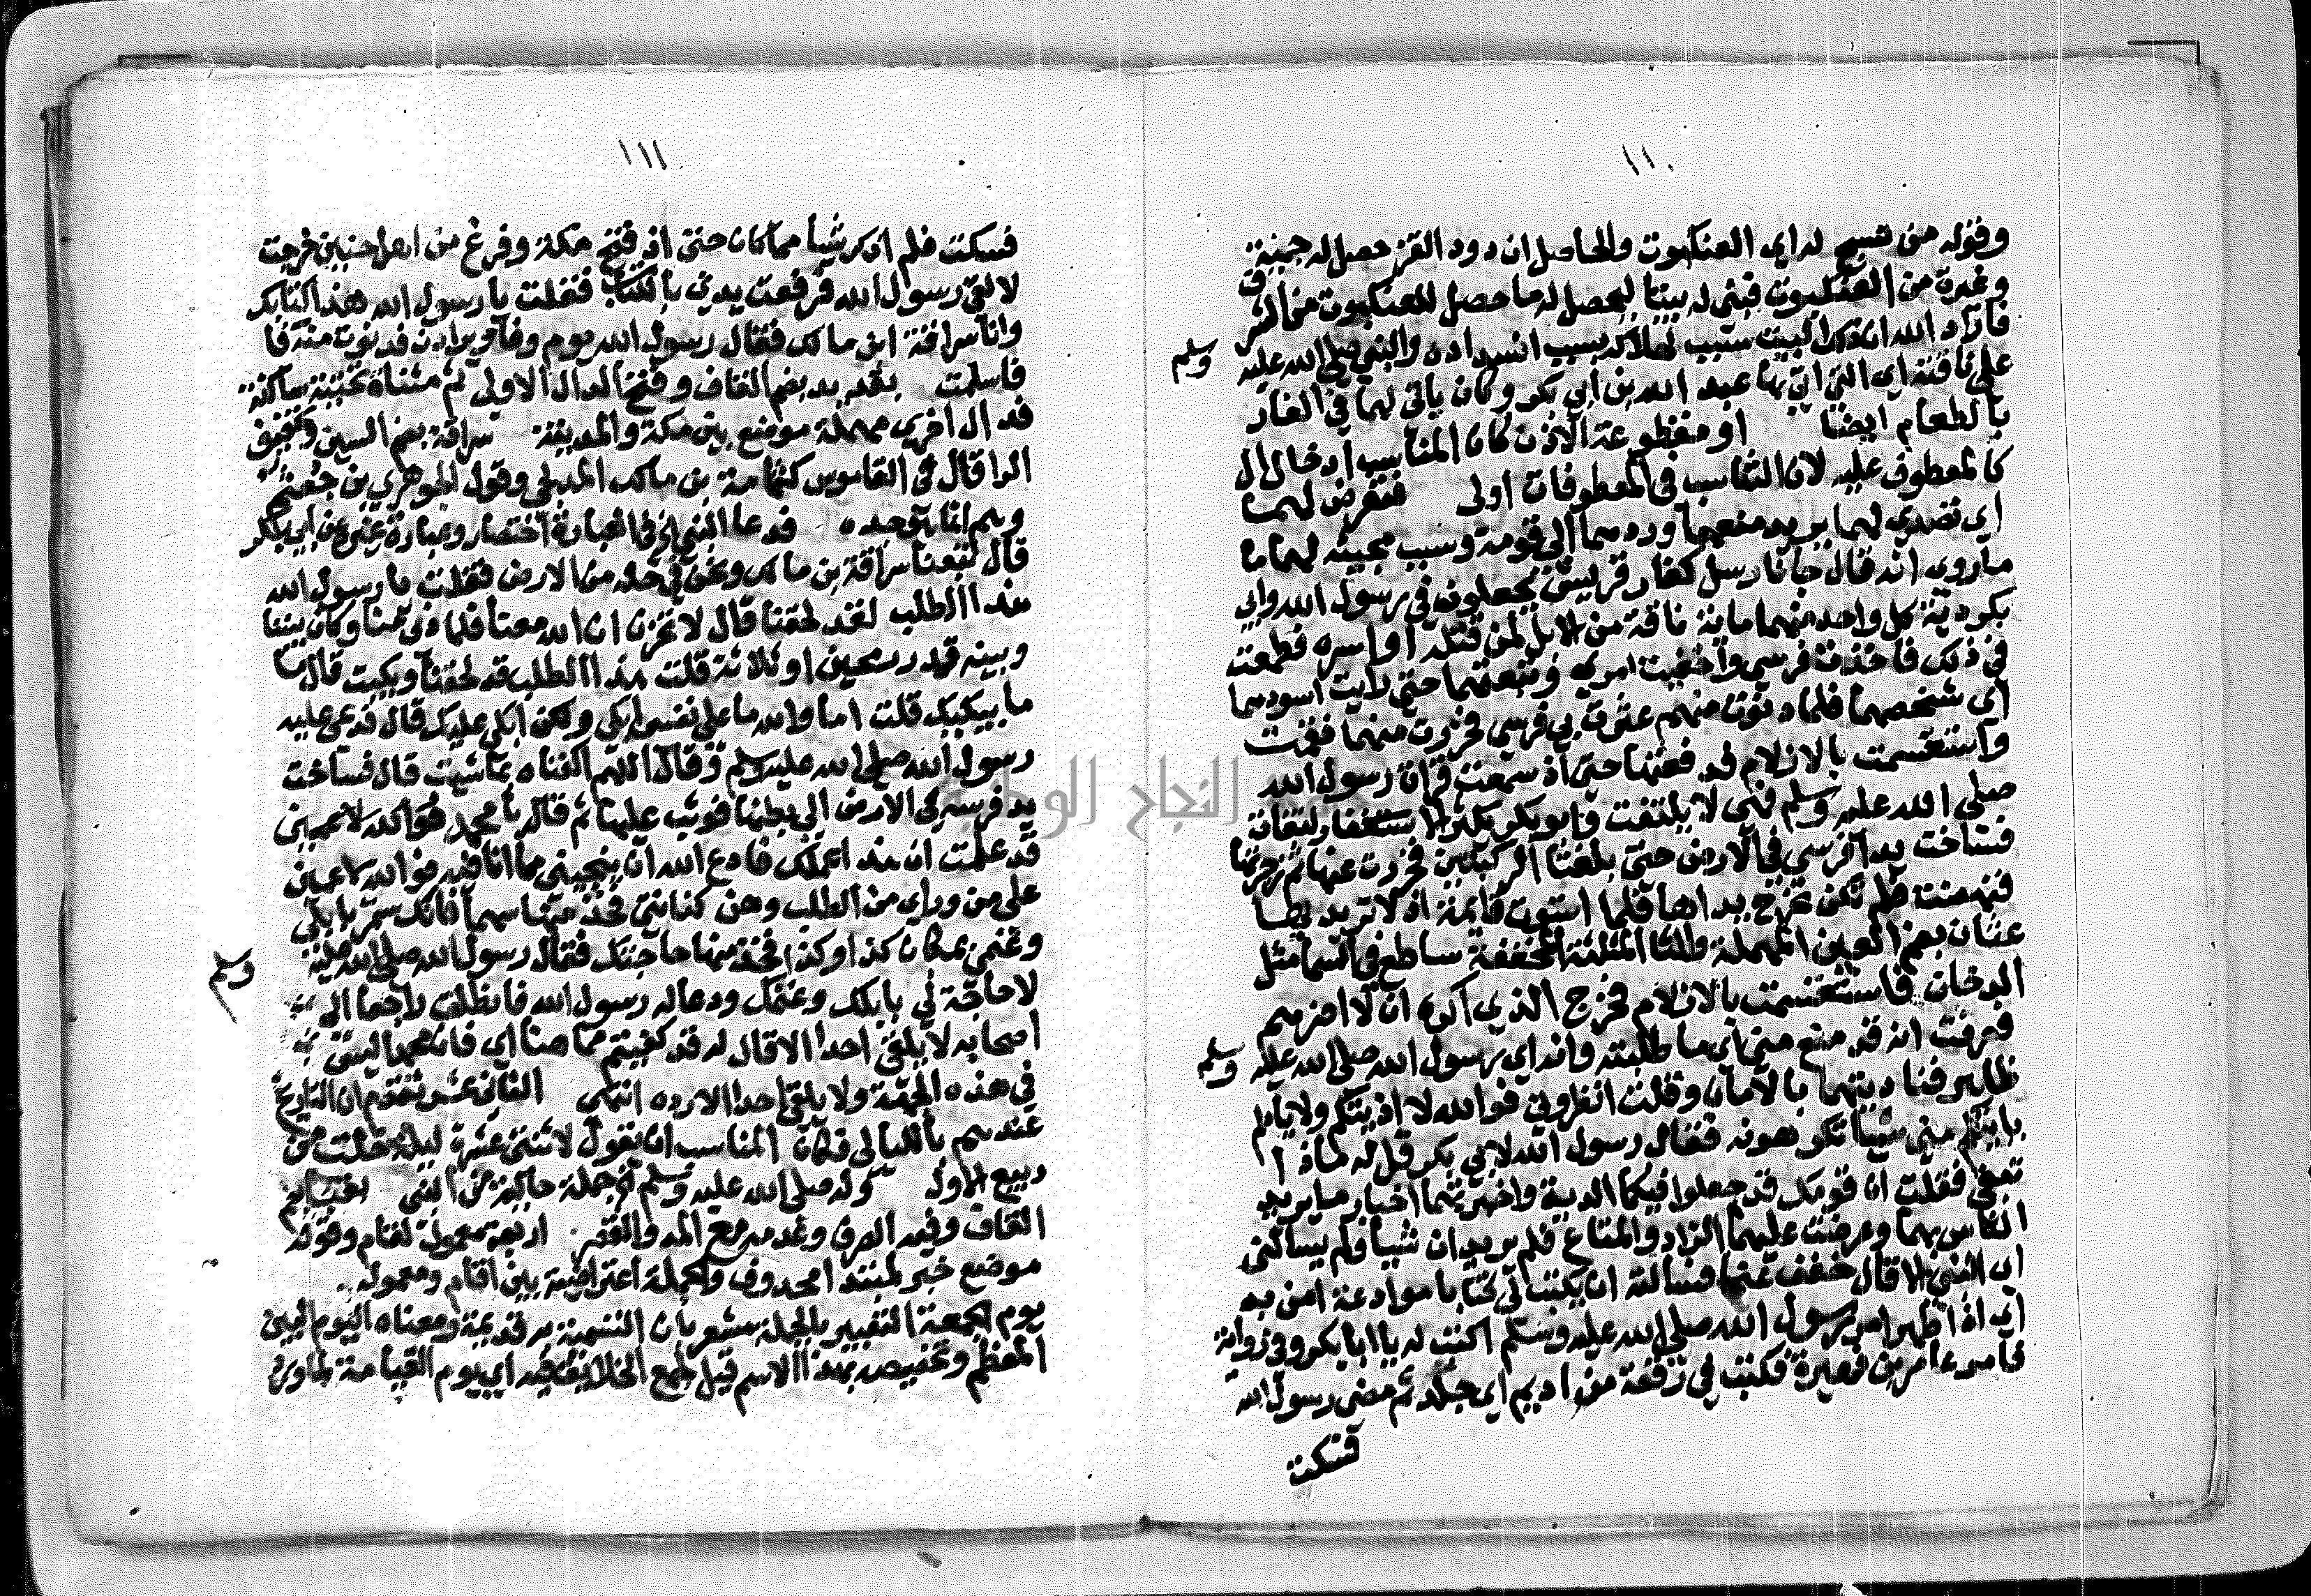 ١١٠
وقوله من نسج له اى العنكبوت والحاصل ان دود القز حصل له
وغيرة من العنكبوت فبنى له بيتا ليحصل له ما حصل للعنكبوت من الشرف
فاراد الله ان ذلك البيت سبب لهلاكه بسبب انسداده والنبي صلى الله عليه وسلم
على ناقته اى التى اتى بها عبد الله بن ابي بكر وكان ياتى لهما في الغار
بالطعام ايضا او مقطوعة الاذن كان المناسب ادخال ال
كالمعطوف عليه لان التناسب في المعطوفات اولى فتعرض لهما
اي تصدى لهما يريد منعهما وردهما الى قومه وسبب مجيئه لهما ما
ما روى انه قال جانا رسل كفار قريش يجعلون في رسول الله وابي
بكر دية كل واحد منهما ماية ناقة من الابل لمن قتله او اسره فطمعت
في ذلك فاخذت فرسي واخفيت امري وتبعتهما حتى رايت اسودهما
اى شخصهما فلما دنوت منهم عثرت بي فرسي فخررت منها فقمت
واستقسمت بالازلام فدفعتها حتى اذ سمعت قراة رسول الله
صلى الله عليه وسلم فهى لا يلتفت وابو بكر يكثر الاستغفار
فساخت يدا فرسي في الارض حتى بلغتا الركبتين فخررت عنها ثم زجرتها
فنهضت فلم تكن تخرج يداها فلما استوت قايمة اذ لاثر يديها
عثان بضم العين المهملة والثا المثلثة المخففة ساطع في السما مثل
الدخان فاستقسمت بالازلام فخرج الذي اكره ان لا اضرهم
فعرفت انه قد منع مني ما طلبته وان راى رسول الله صلى الله عليه وسلم
ظاهر فناديتهما بالامان وقلت انظروني فوالله لا اذيتكم ولا
ياتيكم مني شيا تكرهونه فقال رسول الله لابي بكر قل له ماذا
تبغي فقلت ان قومك قد جعلوا فيكما الدية واخبرتهما اخبار ما يريد
الناس بهما وعرضت عليهما الزاد والمتاع فلم يريدان شيا ولم يسالني
اى النبي الا قال خفف عنا فسالته ان يكتب لي كتابا موادعة امن به
اى اذا ظهر امر رسول الله صلى الله عليه وسلم اكتب له يا ابا بكر وفى رواية
فامر عامر بن فهيرة فكتب في رقعة من اديم اى جلد ثم مضى رسول الله
فسكت
١١١
فسكت فلم اذكر شيا مما كان حتى اذ فتح مكة وفرغ من اهل حنين خرجت
لالقى رسول الله فرفعت يدي بالكتاب فقلت يا رسول الله هذا كتابك
وانا سراقة ابن مالك فقال رسول الله يوم وفا وبر ادن فدنوت منه فا
فاسلمت بقديد بضم القاف وفتح الدال الاولى ثم مثناة تحتية ساكنة
فدال اخرى مهملة موضع بين مكة والمدينة سراقة بضم السين وتخفيف
الرا قال في القاموس كثمامة بن مالك المدلجي وقول الجوهري بن جعشم
وهم انما هو جده فدعا النبى الخ في العبارة اختصار وعبارة غيره عن ابي بكر
قال تبعنا سراقة بن مالك ونحن في جلد من الارض فقلت يا رسول الله
هذا الطلب لقد لحقنا قال لا تحزن ان الله معنا فلما دنى منا وكان بيننا
وبينه قيد رمحين او ثلاثة قلت هذا الطلب قد لحقنا وبكيت قال ما
ما يبكيك قلت اما والله ما على نفسي ابكي ولكن ابكي عليك قال فدعى عليه
رسول الله صلى الله عليه وسلم وقال اللهم اكفناه بما شيت قال فساخت
يد فرسه في الارض الى بطنها فوثب عليها ثم قال يا محمد
قد علمت ان هذا عملك فادع الله ان ينجيني مما انا فيه فوالله لاعمين
على من وراي من الطلب وهذه كنانتي فخذ منها سهما فانك ستمر بابلي
وغنمي بمكان كذا وكذا فخذ منها حاجتك فقال رسول الله صلى الله عليه وسلم
لا حاجة لي بابلك وغنمك ودعا له رسول الله فانطلق راجعا الى
اصحابه لا يلقى احدا الا قال له قد كفيتم ما هنا اى فان محمدا ليس
في هذه الجهة ولا يلقى احدا الا رده انتهى الثانى عشر تقدم ان التاريخ
عندهم بالليالي فكان المناسب ان يقول لاثنتى عشرة ليلة خلت من
ربيع الاول قوله صلى الله عليه وسلم جملة حالية من النبي
القاف وفيه الصرف وعدمه مع المد والقصر اربعة معمول لقام وقوله
موضع خبر لمبتدا محذوف والجملة اعتراضية بين اقام ومعموله
يوم الجمعة التعبير بالجمعة مشعر بان التسمية به قديمة ومعناه اليوم
المعظم وتخصيص بهذا الاسم قيل لجمع الخلايق فيه اي يوم القيامة لما روى